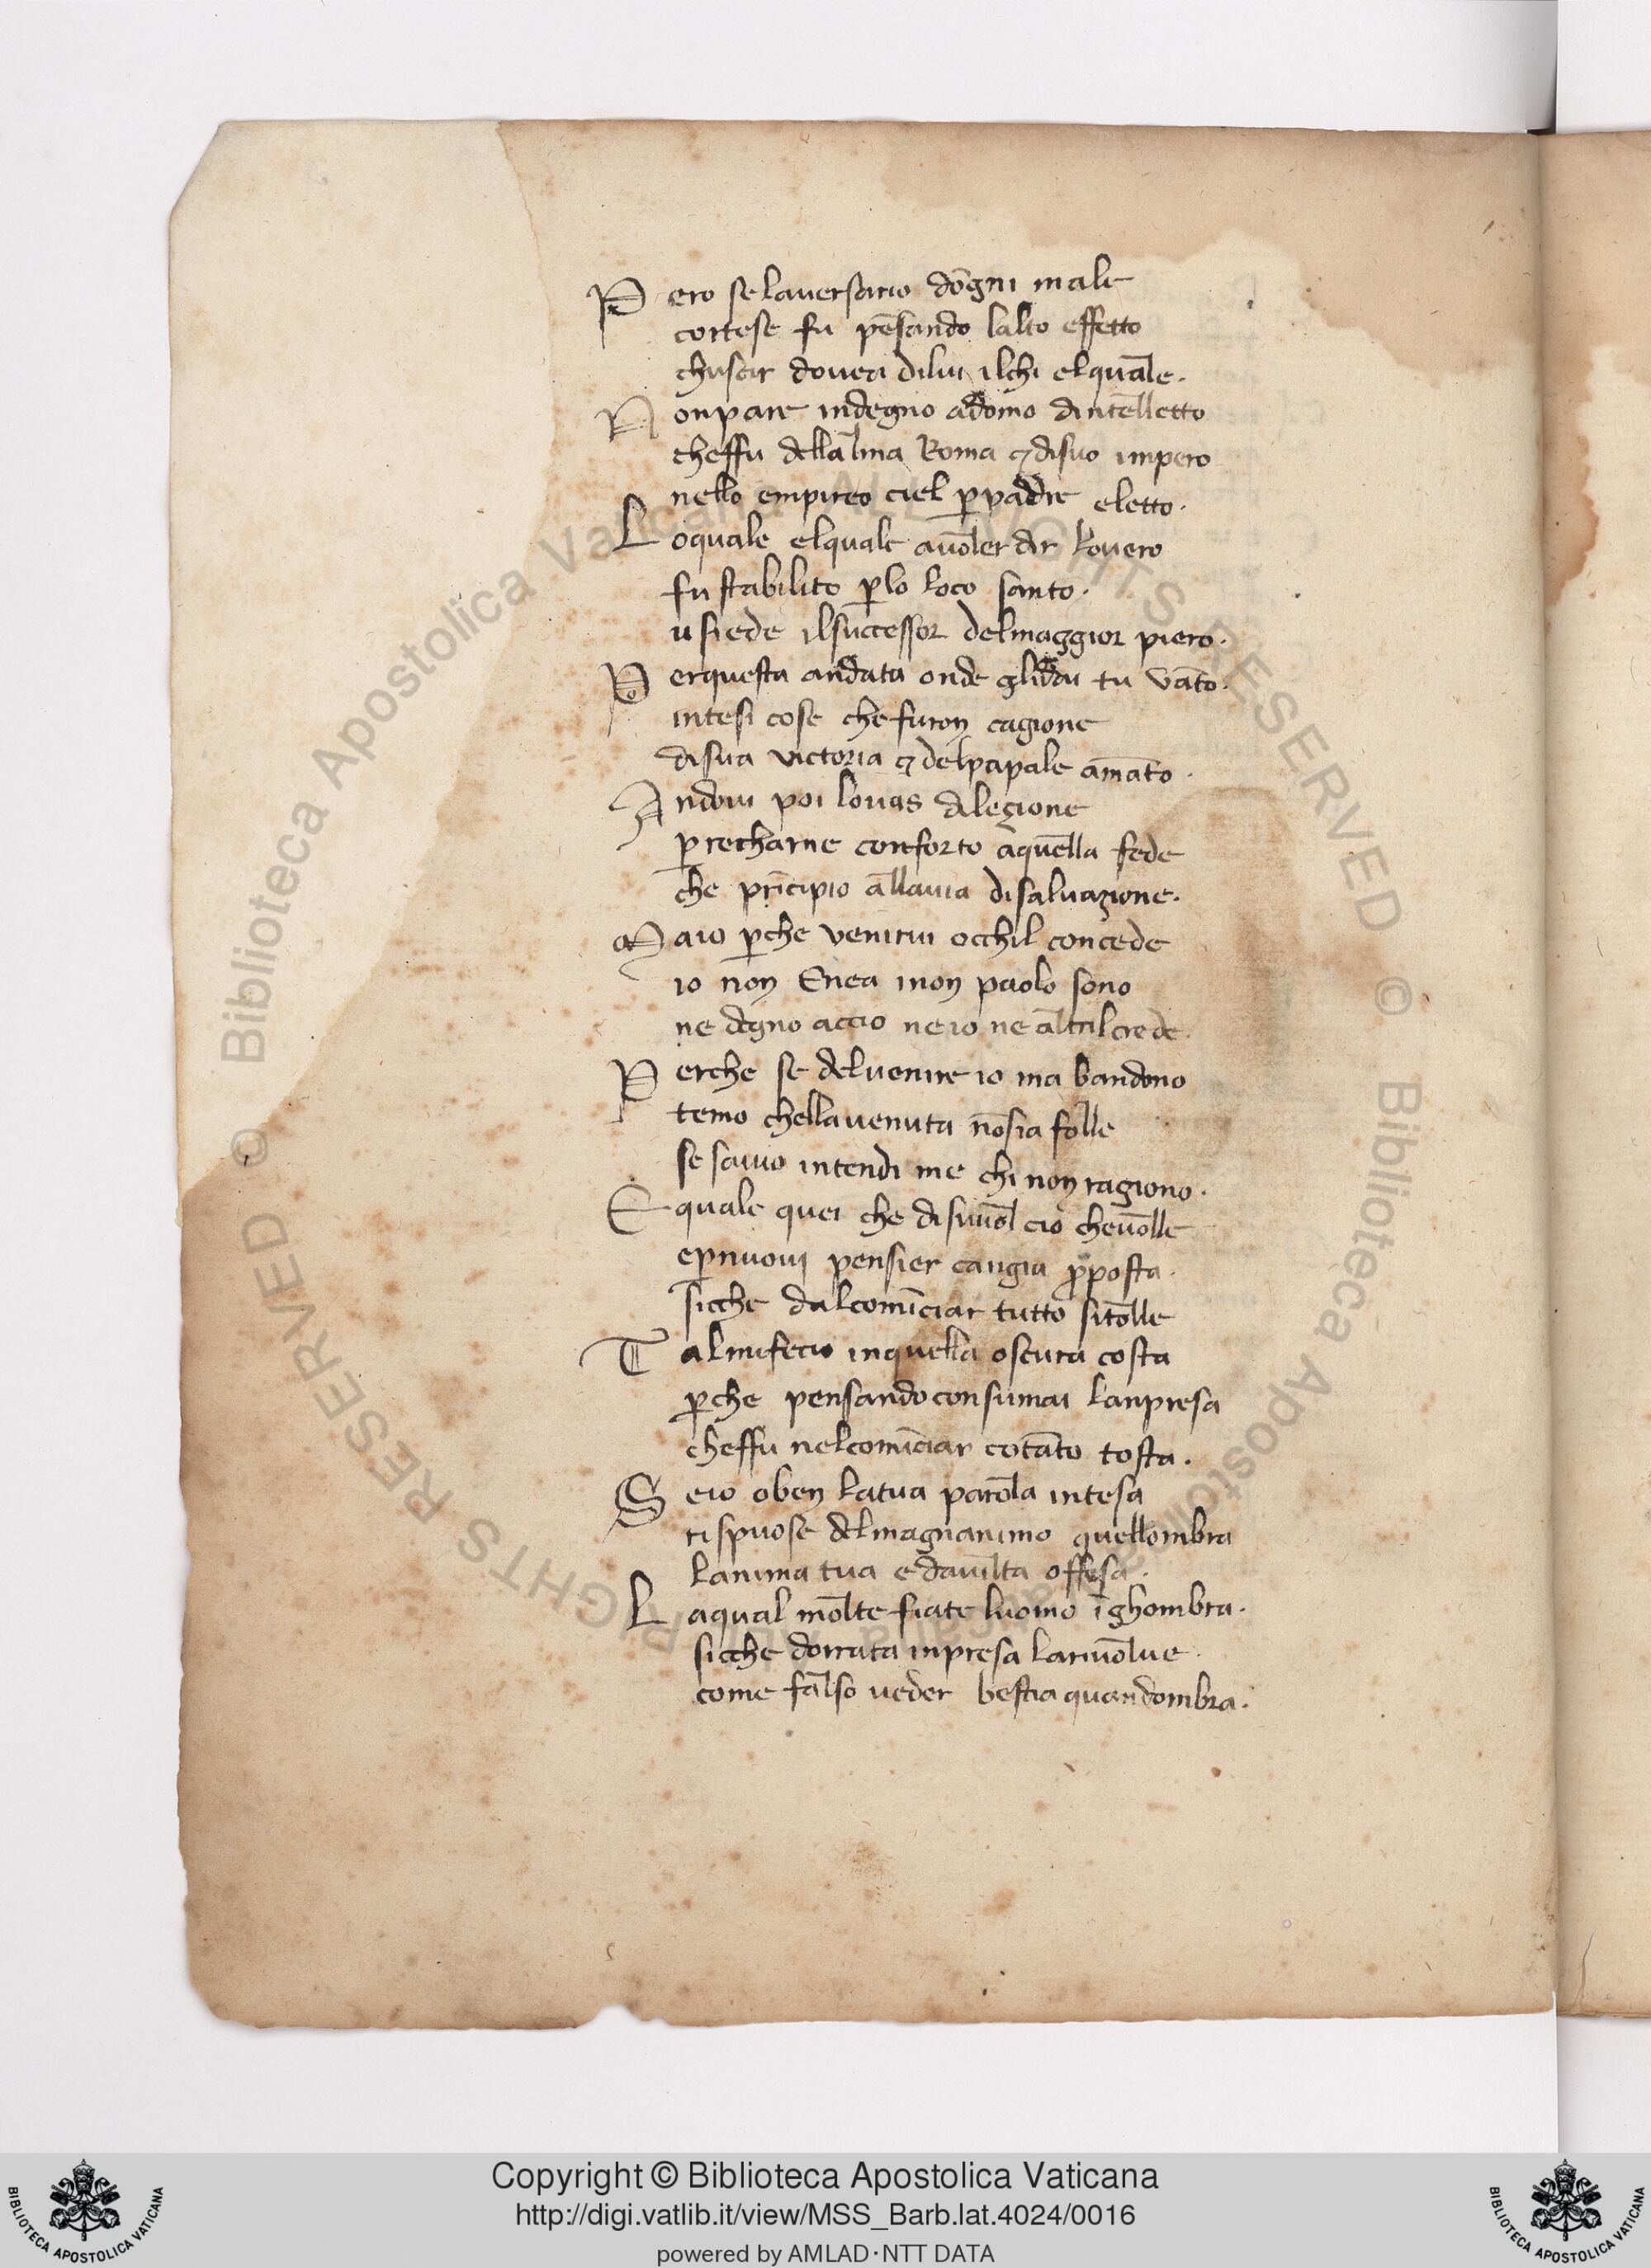 Pero selauersario dōgni male
cortese fu pēsando lalto effetto
chuscir douea dilui ilchi elquale.
Nonpare indegno adomo dintelletto
cheffu dellalma Roma ⁊ disuo impero
nello empireo ciel ꝑpadre eletto.
Loquale elquale auoler dir louero
fu stabilito ꝑlo loco santo.
u siede ilsuccessor delmaggior piero.
Perquesta andata onde glidai tu vāto.
intesi cose che furon cagione
disua victoria ⁊ delpapale amāto.
Andoui poi louas delezione
ꝑrecharne conforto aquella fede
che prīcipio allauia disaluazione.
Maio ꝑche venirui occhil concede
io non Enea inon paolo sono
ne degno accio neio ne altrilcrede.
Perche se deluenire io ma bandono
temo chellauenuta nōsia folle
se sauio intendi me chi non ragiono.
Equale quei che disuuol cio cheuolle
eꝑnuoui pensier cangia ꝓposta.
sicche dalcomīciar tutto sitolle
Talmifecio inquella oscura costa
ꝑche pensandoconsumai lanpresa
cheffu nelcomīciar cotāto tosta.
Seio oben latua parola intesa
rispuose delmagnanimo quellombra
lanima tua e dauilta offesa.
Laqual molte fiate luomo īghombra.
sicche donrata inpresa lariuolue.
come falso ueder bestia quandombra.
Copyright © Biblioteca Apostolica Vaticana
http://digi.vatlib.it/view/MSS_Barb.lat.4024/0016
powered by AMLAD·NTT DATA
BIBLIOTECA APOSTOLICA VATICANA
BIBLIOTECA APOSTOLICA VATICANA
© Biblioteca Apostolica Vaticana ALL RIGHTS RESERVED © Biblioteca Apostolica Vaticana ALL RIGHTS RESERVED